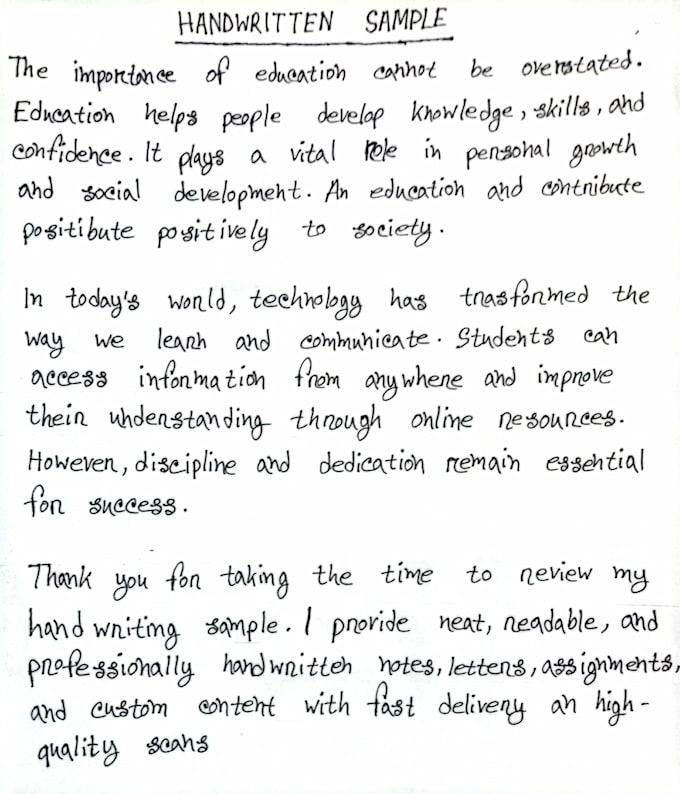 HANDWRITTEN SAMPLE
The importance of education cannot be overstated.
Education helps people develop knowledge, skills, and
confidence. It plays a vital role in personal growth
and social development. An education and contribute
positibute positively to society.
In today's world, technology has trasformed the
way we learn and communicate. Students can
access information from anywhere and improve
their understanding through online resources.
However, discipline and dedication remain essential
for success.
Thank you for taking the time to review my
hand writing sample. I provide neat, readable, and
professionally handwritten notes, letters, assignments,
and custom content with fast delivery an high-
quality scans